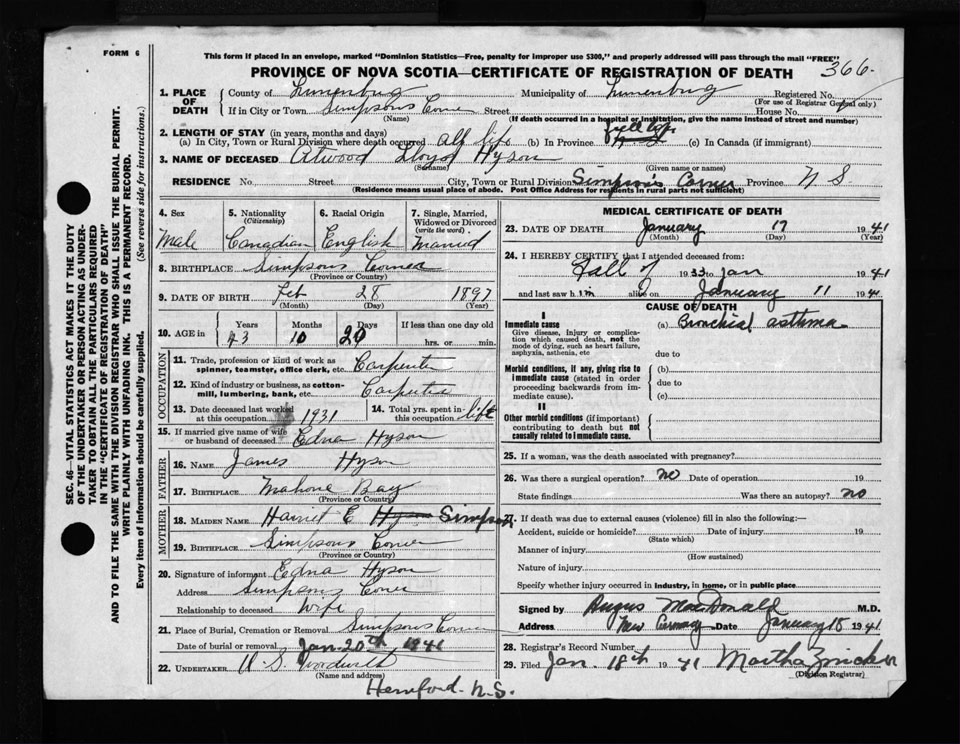 FORM 6
This form if placed in an envelope, marked "Dominion Statistics—Free, penalty for improper use $300," and properly addressed will pass through the mail "FREE"
PROVINCE OF NOVA SCOTIA—CERTIFICATE OF REGISTRATION OF DEATH
366
1. PLACE OF DEATH
County of Lunenburg Municipality of Lunenburg Registered No.
(For use of Registrar General only)
If in City or Town Simpsons Corner Street House No.
(Name) (If death occurred in a hospital or institution, give the name instead of street and number)
2. LENGTH OF STAY (in years, months and days)
(a) In City, Town or Rural Division where death occurred all life (b) In Province full life (c) In Canada (if immigrant)
3. NAME OF DECEASED Atwood Lloyd Hyson
(Surname) (Given name or names)
RESIDENCE No. Street City, Town or Rural Division Simpson's Corner Province N S
(Residence means usual place of abode. Post Office Address for residents in rural parts not sufficient)
4. Sex
Male
5. Nationality
(Citizenship)
Canadian
6. Racial Origin
English
7. Single, Married, Widowed or Divorced
(write the word)
Married
8. BIRTHPLACE Simpsons Corner
(Province or Country)
9. DATE OF BIRTH Feb 28 1897
(Month) (Day) (Year)
10. AGE in Years Months Days If less than one day old
43 10 20 hrs. or min.
OCCUPATION
11. Trade, profession or kind of work as spinner, teamster, office clerk, etc. Carpenter
12. Kind of industry or business, as cotton-mill, lumbering, bank, etc. Carpenter
13. Date deceased last worked at this occupation 1931
14. Total yrs. spent in this occupation life
15. If married give name of wife or husband of deceased Edna Hyson
FATHER
16. NAME James Hyson
17. BIRTHPLACE Mahone Bay
(Province or Country)
MOTHER
18. MAIDEN NAME Harriet E Hyson Simpson
19. BIRTHPLACE Simpsons Corner
(Province or Country)
20. Signature of informant Edna Hyson
Address Simpsons Corner
Relationship to deceased Wife
21. Place of Burial, Cremation or Removal Simpsons Corner
Date of burial or removal Jan 20th 1941
22. UNDERTAKER
(Name and address)
Hemford. N.S.
MEDICAL CERTIFICATE OF DEATH
23. DATE OF DEATH January 17 1941
(Month) (Day) (Year)
24. I HEREBY CERTIFY that I attended deceased from:
Fall of 1933 to Jan 1941
and last saw him alive on January 11 1941
CAUSE OF DEATH
I
Immediate cause
Give disease, injury or complication which caused death, not the mode of dying, such as heart failure, asphyxia, asthenia, etc
(a) Bronchial asthma
due to
Morbid conditions, if any, giving rise to immediate cause (stated in order proceeding backwards from immediate cause).
(b)
due to
(c)
II
Other morbid conditions (if important) contributing to death but not causally related to immediate cause.
25. If a woman, was the death associated with pregnancy?
26. Was there a surgical operation? no Date of operation 19
State findings Was there an autopsy? no
27. If death was due to external causes (violence) fill in also the following:—
Accident, suicide or homicide? Date of injury 19
(State which)
Manner of injury
(How sustained)
Nature of injury
Specify whether injury occurred in industry, in home, or in public place
Signed by Angus MacDonald M.D.
Address New Germany Date January 18 1941
28. Registrar's Record Number
29. Filed Jan. 18th 1941 Martha Zinck
(Division Registrar)
SEC. 46—VITAL STATISTICS ACT MAKES IT THE DUTY
OF THE UNDERTAKER OR PERSON ACTING AS UNDER-
TAKER TO OBTAIN ALL THE PARTICULARS REQUIRED
IN THE "CERTIFICATE OF REGISTRATION OF DEATH"
AND TO FILE THE SAME WITH THE DIVISION REGISTRAR WHO SHALL ISSUE THE BURIAL PERMIT.
WRITE PLAINLY WITH UNFADING INK. THIS IS A PERMANENT RECORD.
Every item of information should be carefully supplied. (See reverse side for instructions.)